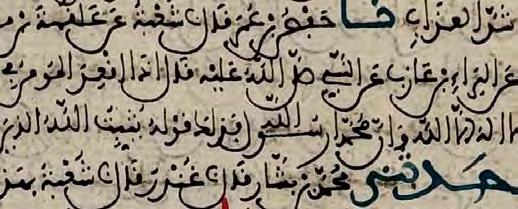 شر العذاب نا حفص بن عمر قال شعبة عن علقمة بن مر
عن البراء بن عازب عن النبي صلى الله عليه قال اذا اقعد المومن في
ا اله الا الله وان محمدا رسول الله فذلك قوله يثبت الله الذين
حدثني محمد بن بشار قال غندر قال شعبة بهذ